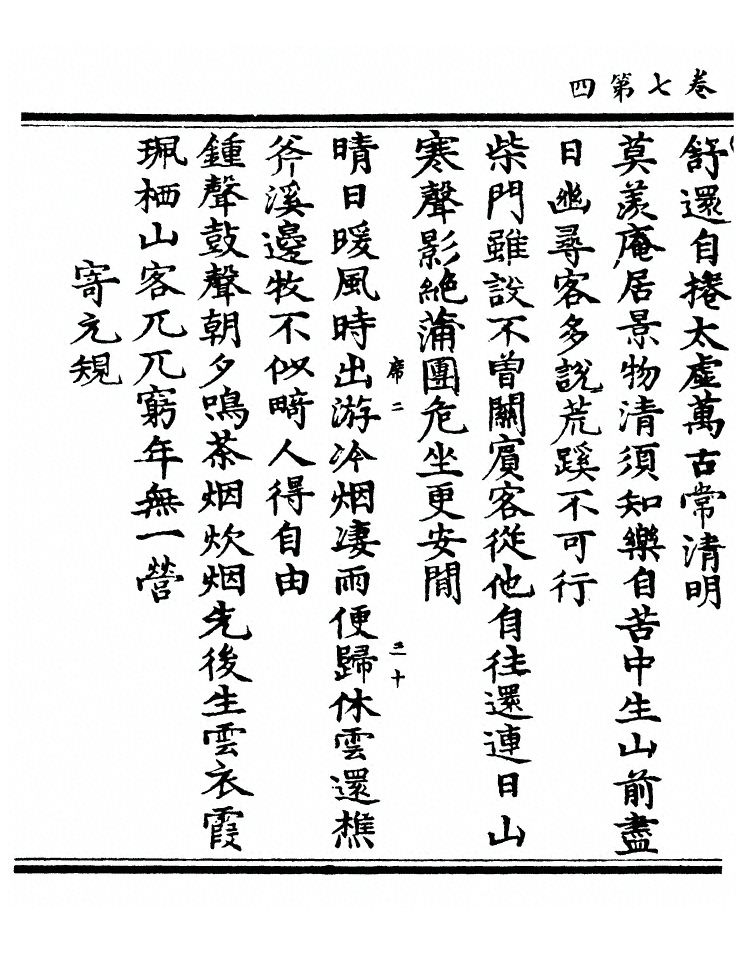 卷七第四
舒還自捲太虛萬古常清明
莫羨庵居景物清須知樂自苦中生山前盡
日幽尋客多說荒蹊不可行
柴門雖設不曾關賓客從他自往還連日山
寒聲影絶蒲團危坐更安閒
席二 三十
晴日暖風時出游冷烟凄雨便歸休雲還樵
斧溪邊牧不似畸人得自由
鍾聲鼓聲朝夕鳴茶烟炊烟先後生雲衣霞
珮栖山客兀兀窮年無一營
寄元規